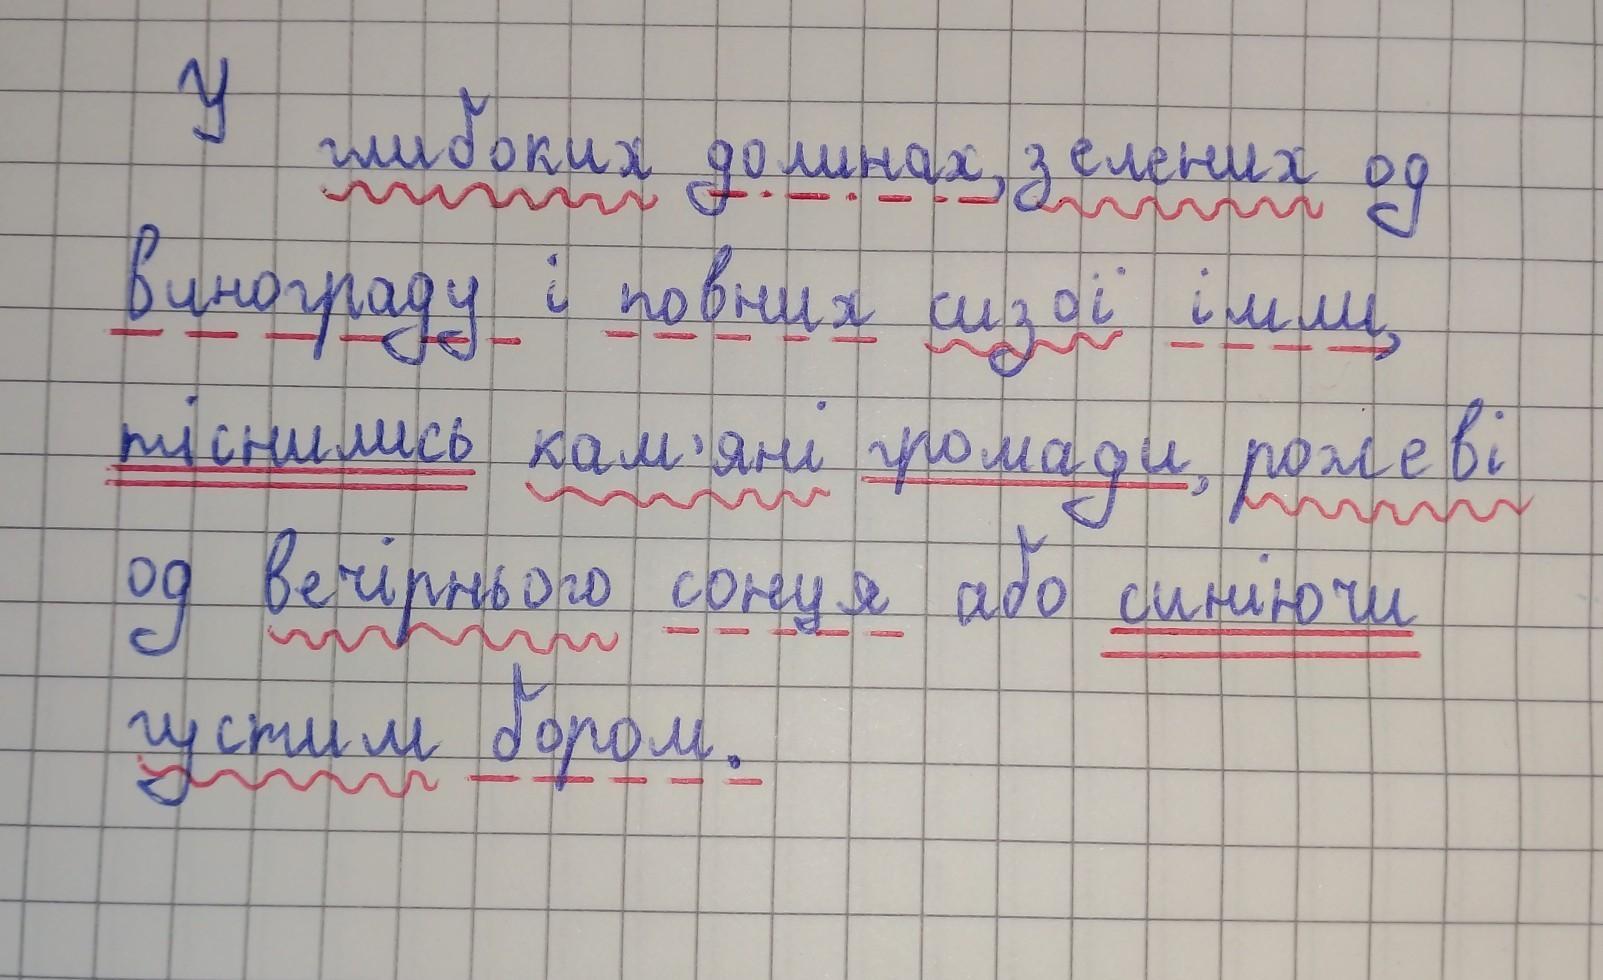 У
глибоких долинах, зелених од
винограду і повних сизої імли,
тіснились кам'яні громади, рожеві
од вечірнього сонця або синіючи
густим бором.